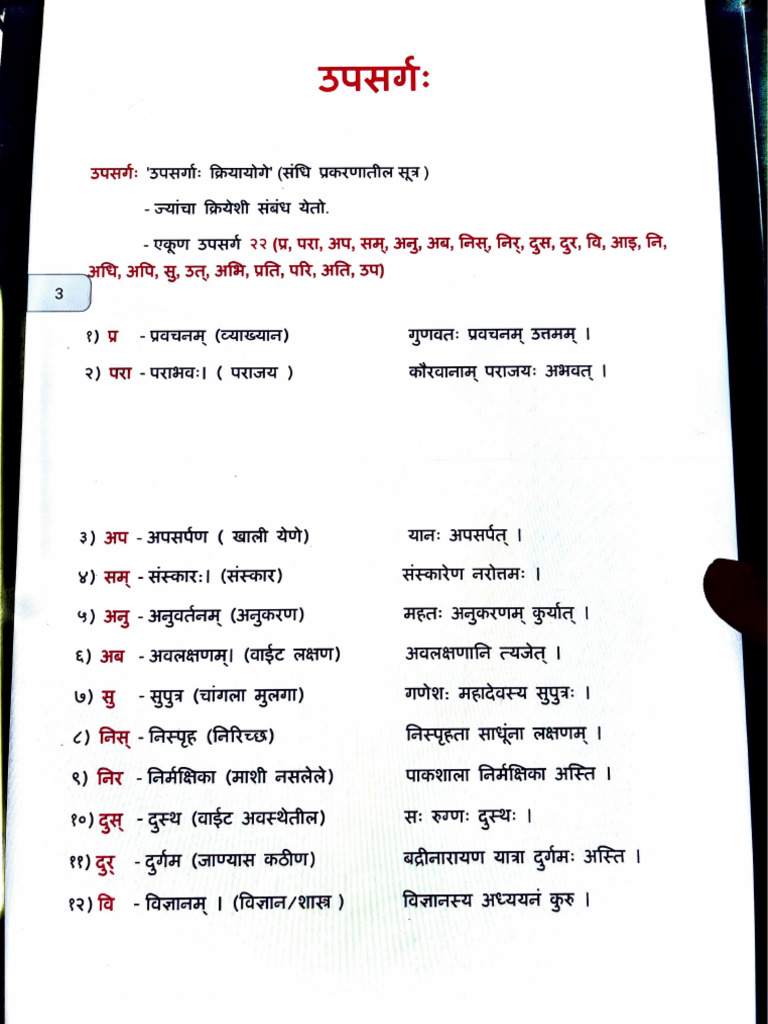 उपसर्गः
उपसर्गः 'उपसर्गाः क्रियायोगे' (संधि प्रकरणातील सूत्र )
- ज्यांचा क्रियेशी संबंध येतो.
- एकूण उपसर्ग २२ (प्र, परा, अप, सम्, अनु, अब, निस्, निर्, दुस, दुर, वि, आइ, नि,
अधि, अपि, सु, उत्, अभि, प्रति, परि, अति, उप)
3
१) प्र - प्रवचनम् (व्याख्यान) गुणवतः प्रवचनम् उत्तमम् ।
२) परा - पराभवः। ( पराजय ) कौरवानाम् पराजयः अभवत् ।
३) अप - अपसर्पण ( खाली येणे) यानः अपसर्पत् ।
४) सम् - संस्कारः। (संस्कार) संस्कारेण नरोत्तमः ।
५) अनु - अनुवर्तनम् (अनुकरण) महतः अनुकरणम् कुर्यात् ।
६) अब - अवलक्षणम्। (वाईट लक्षण) अवलक्षणानि त्यजेत् ।
७) सु - सुपुत्र (चांगला मुलगा) गणेशः महादेवस्य सुपुत्रः ।
८) निस् - निस्पृह (निरिच्छ) निस्पृहता साधूंना लक्षणम् ।
९) निर - निर्मक्षिका (माशी नसलेले) पाकशाला निर्मक्षिका अस्ति ।
१०) दुस् - दुस्थ (वाईट अवस्थेतील) सः रुग्णः दुस्थः ।
११) दुर् - दुर्गम (जाण्यास कठीण) बद्रीनारायण यात्रा दुर्गमः अस्ति ।
१२) वि - विज्ञानम् । (विज्ञान/शास्त्र ) विज्ञानस्य अध्ययनं कुरु ।